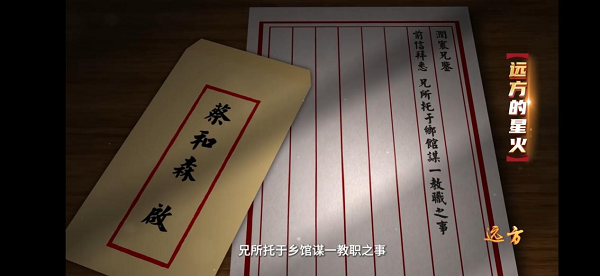 潤寰兄鑒
前信祥悉 兄所托于鄉館謀一教職之事
蔡和森 啟
【远方的星火】
远方
兄所托于乡馆谋一教职之事